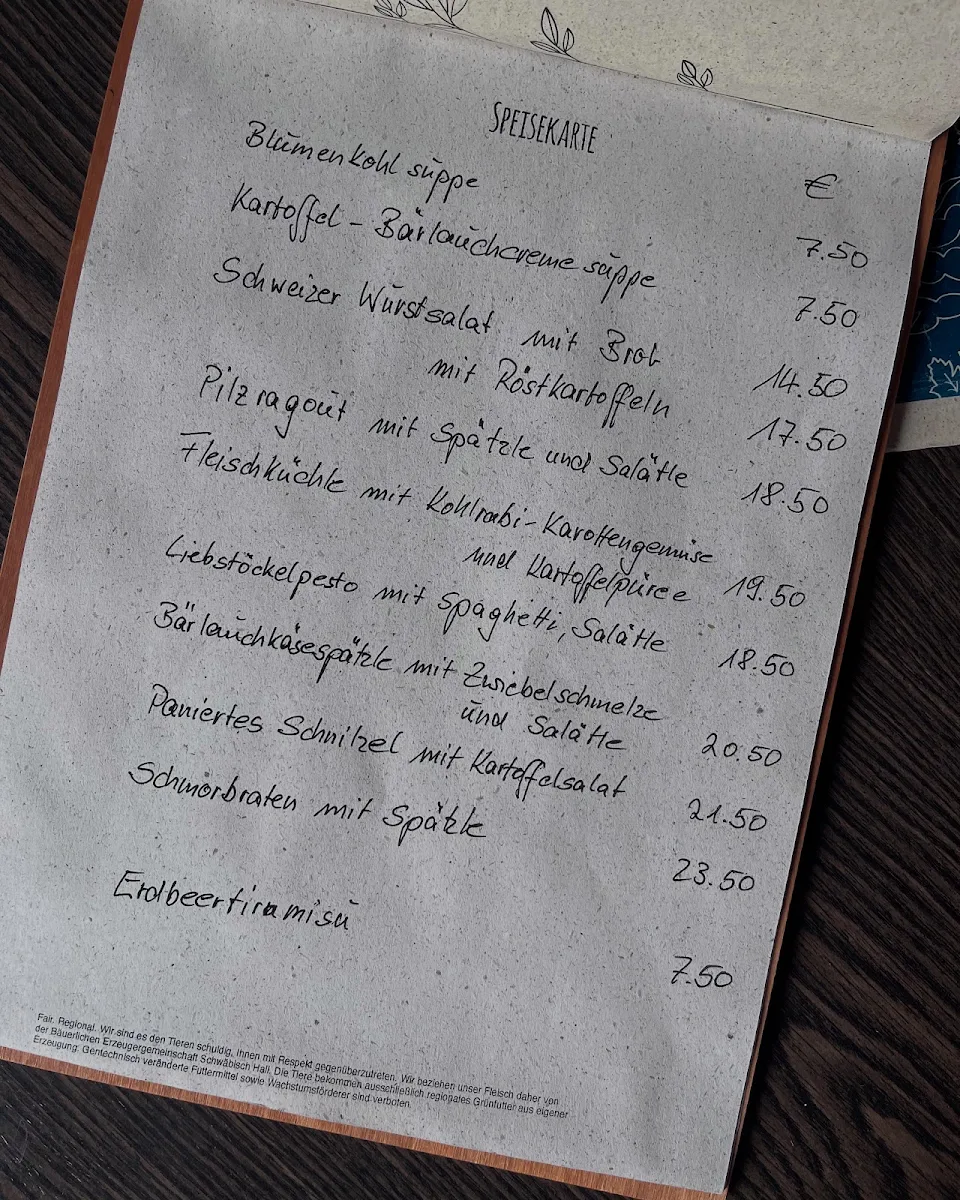 SPEISEKARTE
€
Blumenkohlsuppe 7.50
Kartoffel-Bärlauchcremesuppe 7.50
Schweizer Wurstsalat mit Brot 14.50
mit Röstkartoffeln 17.50
Pilzragout mit Spätzle und Salätle 18.50
Fleischküchle mit Kohlrabi-Karottengemüse
und Kartoffelpüree 19.50
Liebstöckelpesto mit Spaghetti, Salätle 18.50
Bärlauchkäsespätzle mit Zwiebelschmelze
und Salätle 20.50
Paniertes Schnitzel mit Kartoffelsalat 21.50
Schmorbraten mit Spätzle 23.50
Erdbeertiramisu 7.50
Fair. Regional. Wir sind es den Tieren schuldig, ihnen mit Respekt gegenüberzutreten. Wir beziehen unser Fleisch daher von
der Bäuerlichen Erzeugergemeinschaft Schwäbisch Hall. Die Tiere bekommen ausschließlich regionales Grünfutter aus eigener
Erzeugung. Gentechnisch veränderte Futtermittel sowie Wachstumsförderer sind verboten.